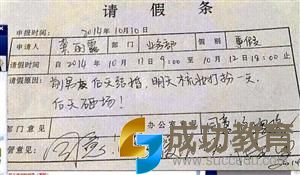 请假条
申报时间: 2014年10月10日
申请人 部门 业务部 假别 事假
请假时间 自2014年10月11日9:00至10月12日18:00
请假原因: 前男友后天结婚,明天梳妆打扮一天,
后天砸场!
部门意见 办公室意见
管意见:
成功教育
www.succedu.com